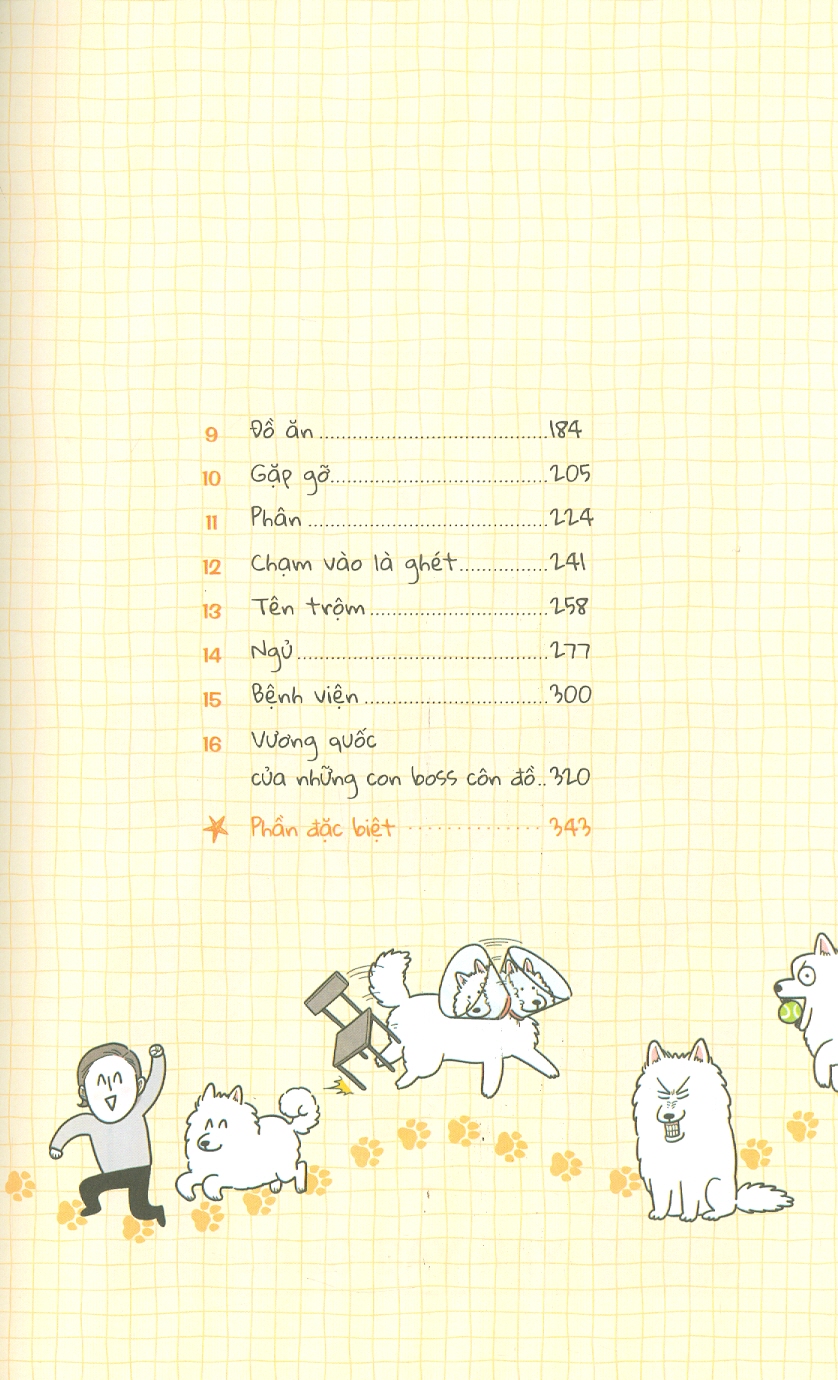 9 Đồ ăn........................................184
10 Gặp gỡ......................................205
11 Phân..........................................224
12 Chạm vào là ghét...............241
13 Tên trộm................................258
14 Ngủ............................................277
15 Bệnh viện................................300
16 Vương quốc
của những con boss côn đồ..320
Phần đặc biệt ·············· 343